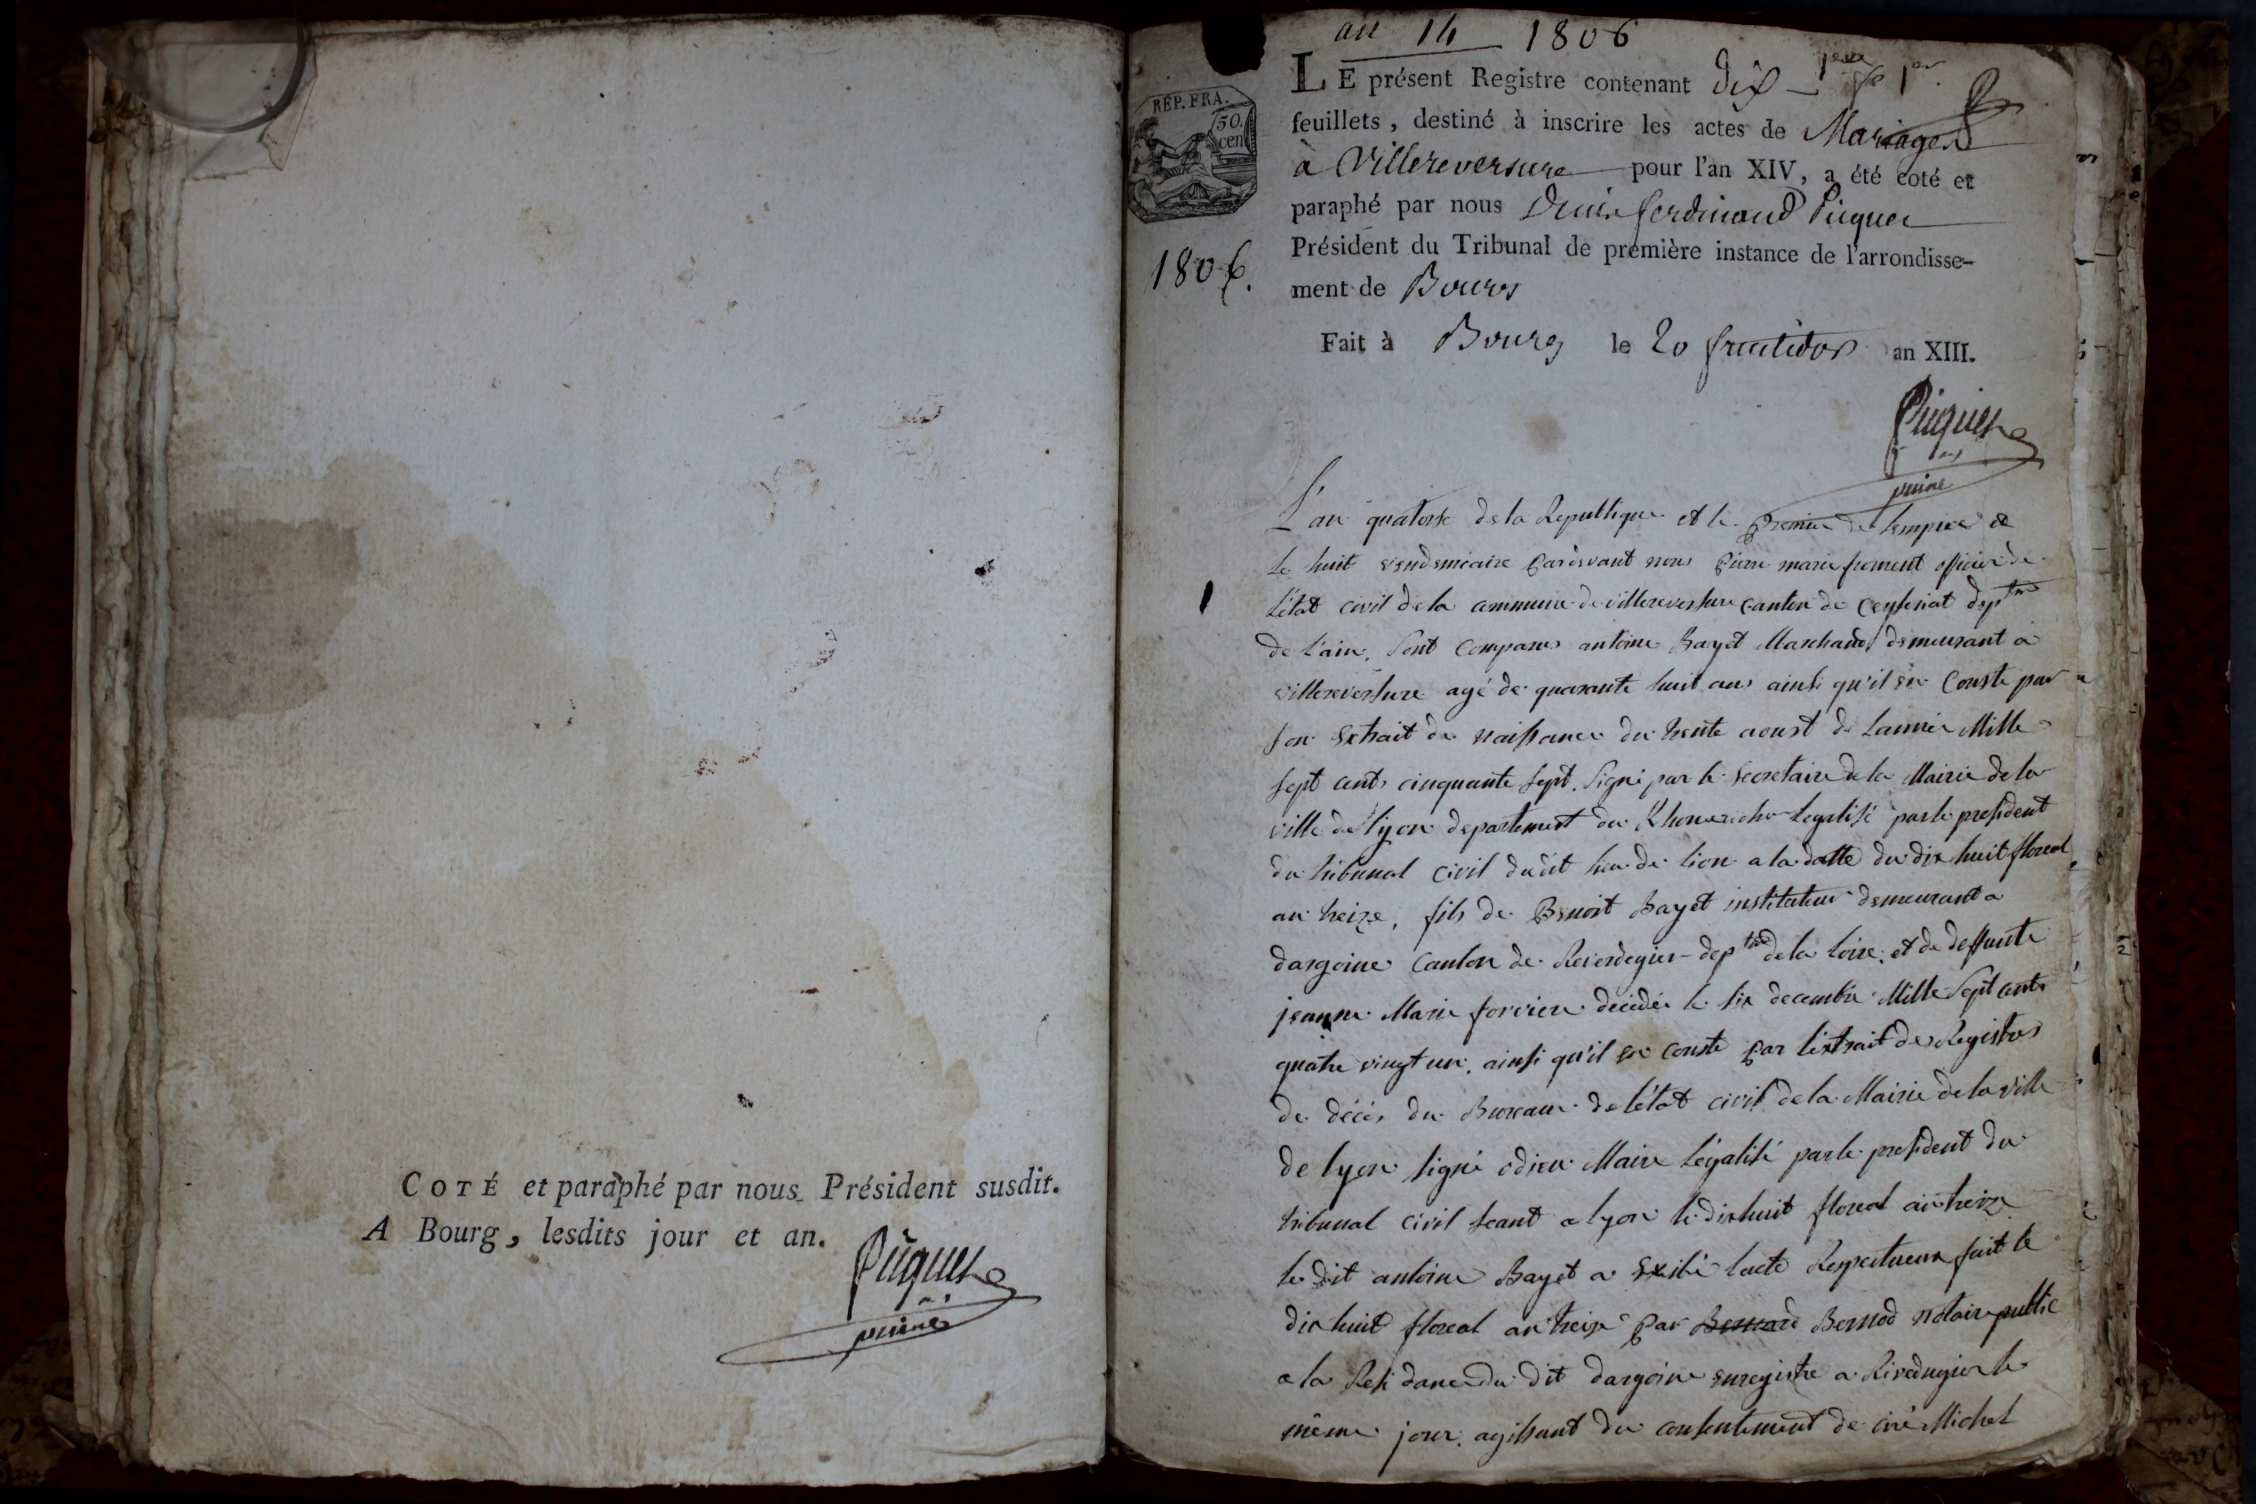 COTÉ et paraphé par nous Président susdit.
A Bourg, lesdits jour et an.
Piquet
an 14 1806
REP. FRA.
50.
cen
1806.
LE présent Registre contenant dix
feuillets, destiné à inscrire les actes de Mariages
à Villereversure pour l'an XIV, a été coté et
paraphé par nous Denis ferdinand Piquet
Président du Tribunal de première instance de l'arrondisse-
ment de Bourg
Fait à Bourg le 20 fructidor an XIII.
Piquet
1
L'an quatorse de la Republique et le premier de lempire et
le huit vendemiaire pardevant nous pierre marie froment officier de
létat civil de la commune de villereversure canton de ceyseriat deptm
de l'ain, sont comparus antoine Bayet Marchand demeurant a
villereversure agé de quarante huit ans ainsi qu'il en Conste par
son extrait de naissance du trente aoust de lannée Mille
sept cents cinquante sept. signé par le secretaire de la Mairie de la
ville de lyon departement du Rhone legalisé par le president
du tribunal civil dudit lieu de lion a la datte du dix huit floreal
an treize, fils de Benoit Bayet instituteur demeurant a
dargoire Canton de Rivedegier dept de la loire, et de deffunte
jeanne Marie forviere decédée le six decembre Mille Sept cents
quatre vingt un, ainsi qu'il en conste par lextrait des Registres
de décès du Bureau de létat civil de la Mairie de la ville
de lyon signé Maire légalisé par le president du
tribunal civil seant a lyon le dix huit floreal an treize
le dit antoine Bayet a exibé lacte Respectueux fait le
dix huit floreal an treize par Bernard Bernod notaire public
a la Residance du dit dargoire enregistre a Rivedugier le
même jour, agissant du consentement de Michel